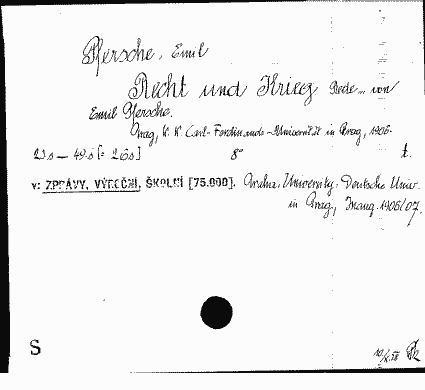 Pfersche, Emil
Recht und Krieg Rede... von
Emil Pfersche.
Prag, K. K. Carl-Ferdinands-Universität in Prag, 1906.
23s — 49s [= 26s] 8° t.
v: ZPRÁVY, VÝROČNÍ, ŠKOLNÍ [75.000]. Praha. University. Deutsche Univ.
in Prag, Inaug. 1906/07.
S